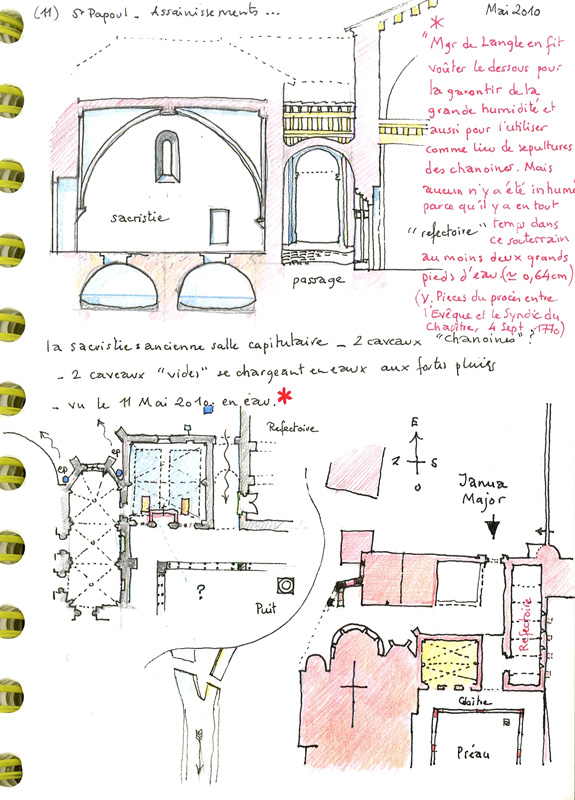 (11) St Papoul - Assainissements...
Mai 2010
*
"Mgr de Langle en fit
voûter le dessous pour
la garantir de la
grande humidité et
aussi pour l'utiliser
comme lieu de sepultures
des chanoines. Mais
aucun n'y a été inhumé
parce qu'il y a en tout
temps dans
ce souterrain
au moins deux grands
pieds d'eau (≃ 0,64cm)
(v. Pieces du procès entre
l'Evêque et le Syndic du
Chapitre, 4 Sept. 1770)
sacristie
"refectoire"
passage
la sacristie = ancienne salle capitulaire - 2 caveaux "chanoines" ?
- 2 caveaux "vides" se chargeant en eaux aux fortes pluies
- vu le 11 Mai 2010 en eau. *
Refectoire
ep
ep
?
Puit
E
N S
O
Janua
Major
Refectoire
Cloître
Préau